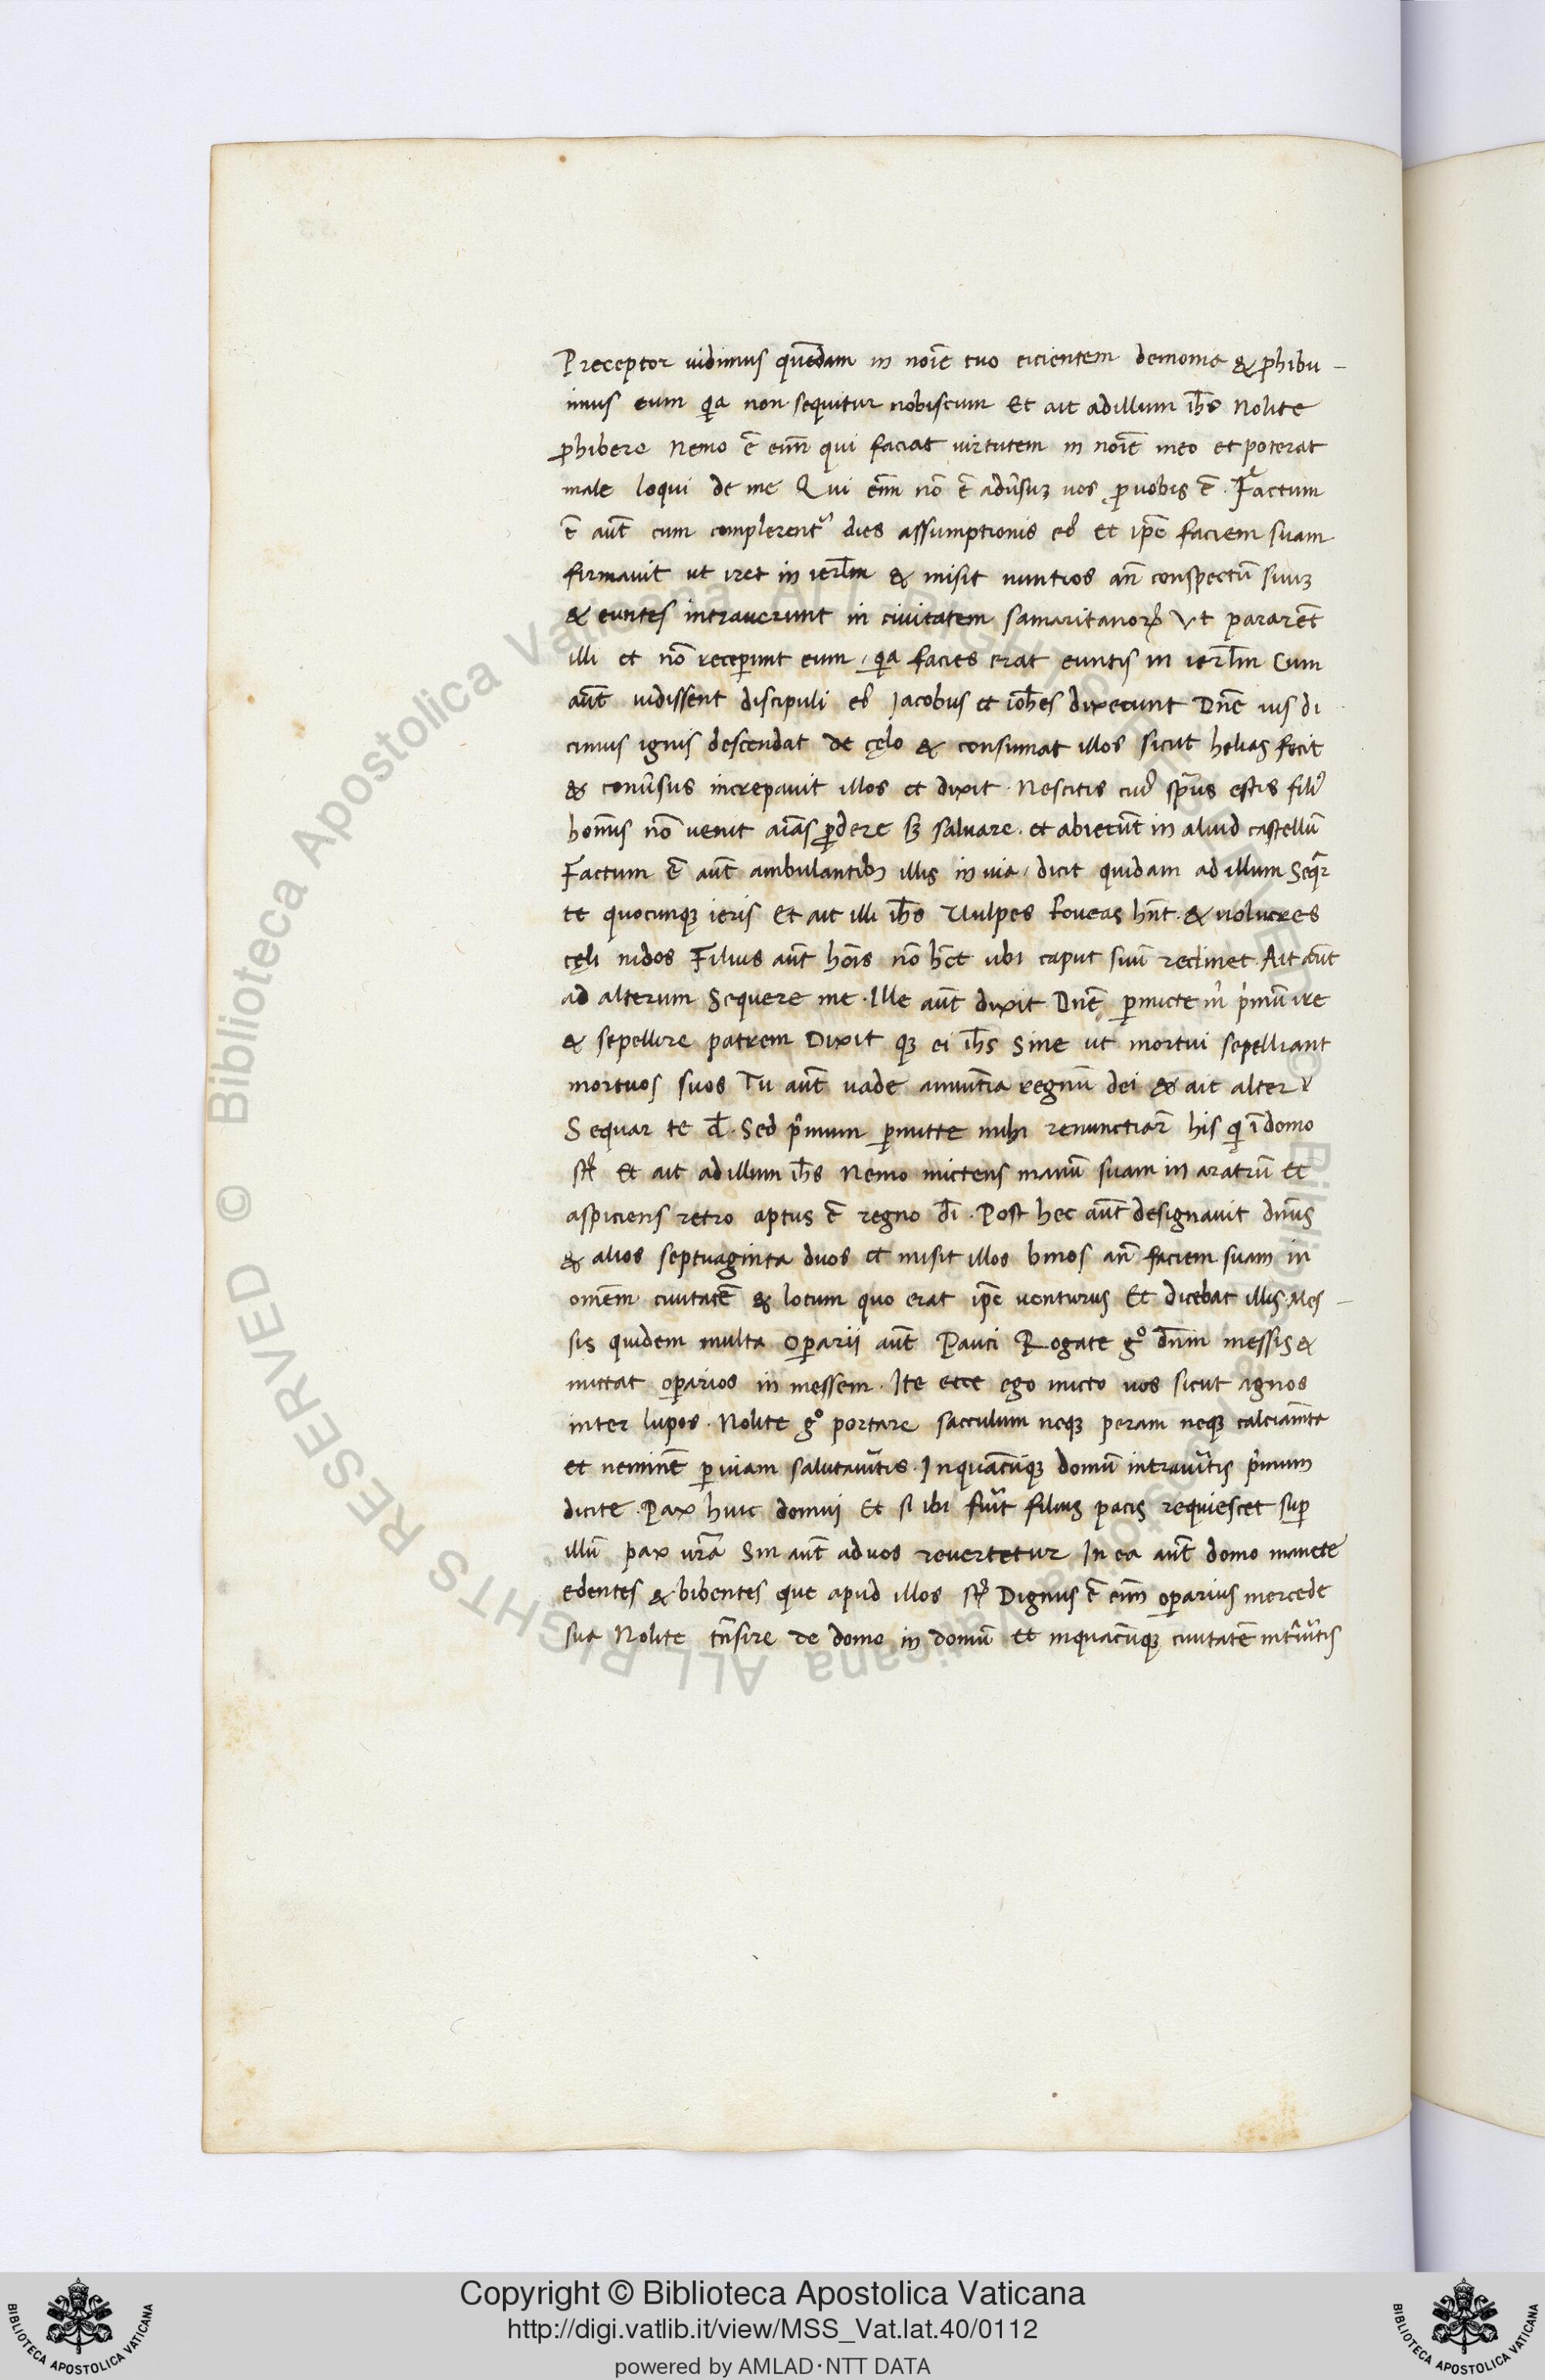 Preceptor vidimus quēdam in noīe tuo eicientem demonia & ꝓhibu-
imus eum qia non sequitur nobiscum Et ait ad illum ihs Nolite
ꝓhibere Nemo ē enim qui faciat virtutem in noīe meo et poterat
male loqui de me Qui enim nō ē adūsuꝫ vos ꝓ vobis ē. Factum
ē aūt cum complerent᷑ dies assumptionis eꝰ et ip̄e faciem suam
firmavit ut iret in ierl̄m & misit nuntios an̄ conspectū suuꝫ
& euntes intraverunt in civitatem samaritanoꝝ Vt pararēt
illi et nō recep̱unt eum, qia facies erat euntis in ierl̄m Cum
aūt vidissent discipuli eꝰ Jacobus et ioh̄es dixerunt Dn̄e vis di
cimus ignis descendat de cęlo & consumat illos sicut helias fecit
& conūsus increpavit illos et dixit. Nescitis cuiꝰ spūs estis filiꝰ
homīs nō venit aīas ꝑdere sꝫ salvare. et abierūt in aliud castellū
Factum ē aūt ambulantibꝫ illis in via, dicit quidam ad illum Seqr̄
te quocunqꝫ ieris Et ait illi ihs Vulpes foveas hn̄t. & volucres
cęli nidos Filius aūt hoīs nō h̄et ubi caput suū reclinet. Ait aūt
ad alterum Sequere me. Ille aūt dixit Dn̄e ꝑmicte m̄ pimū ire
& sepellire patrem Dixit qꝫ ei ihs Sine ut mortui sepelliant
mortuos suos Tu aūt vade annuntia regnū dei & ait alter
Sequar te d̄. Sed pimum ꝑmitte mihi renunctiar̄ his qi ī domo
st̄ Et ait ad illum ihs Nemo mictens manū suam in aratrū et
aspiciens retro aptus ē regno dī. Post hec aūt designavit dn̄us
& alios septuaginta duos et misit illos binos an̄ faciem suam in
omēm civitatē & locum quo erat ip̄e venturus Et dicebat illis. Mes-
sis quidem multa Oꝑarii aūt Pauci Rogate gͦ dn̄m messis &
mittat oꝑarios in messem. Ite ecce ego micto vos sicut agnos
inter lupos. Nolite gͦ portare sacculum neqꝫ peram neqꝫ calciam̄ta
et neminē ꝑ viam salutavūtis. In quācūqꝫ domū intravūtis pimum
dicite. Pax huic domui Et si ibi fūit filius pacis requiescet suꝑ
illū pax vr̄a Sin aūt ad vos revertetur In ea aūt domo manete
edentes & bibentes que apud illos st̄ Dignus ē enim oꝑarius mercede
sua Nolite tn̄sire de domo in domū et in quacūqꝫ civitatē intāvūtis
© Biblioteca Apostolica Vaticana ALL RIGHTS RESERVED
Copyright © Biblioteca Apostolica Vaticana
http://digi.vatlib.it/view/MSS_Vat.lat.40/0112
powered by AMLAD·NTT DATA
BIBLIOTECA APOSTOLICA VATICANA
BIBLIOTECA APOSTOLICA VATICANA